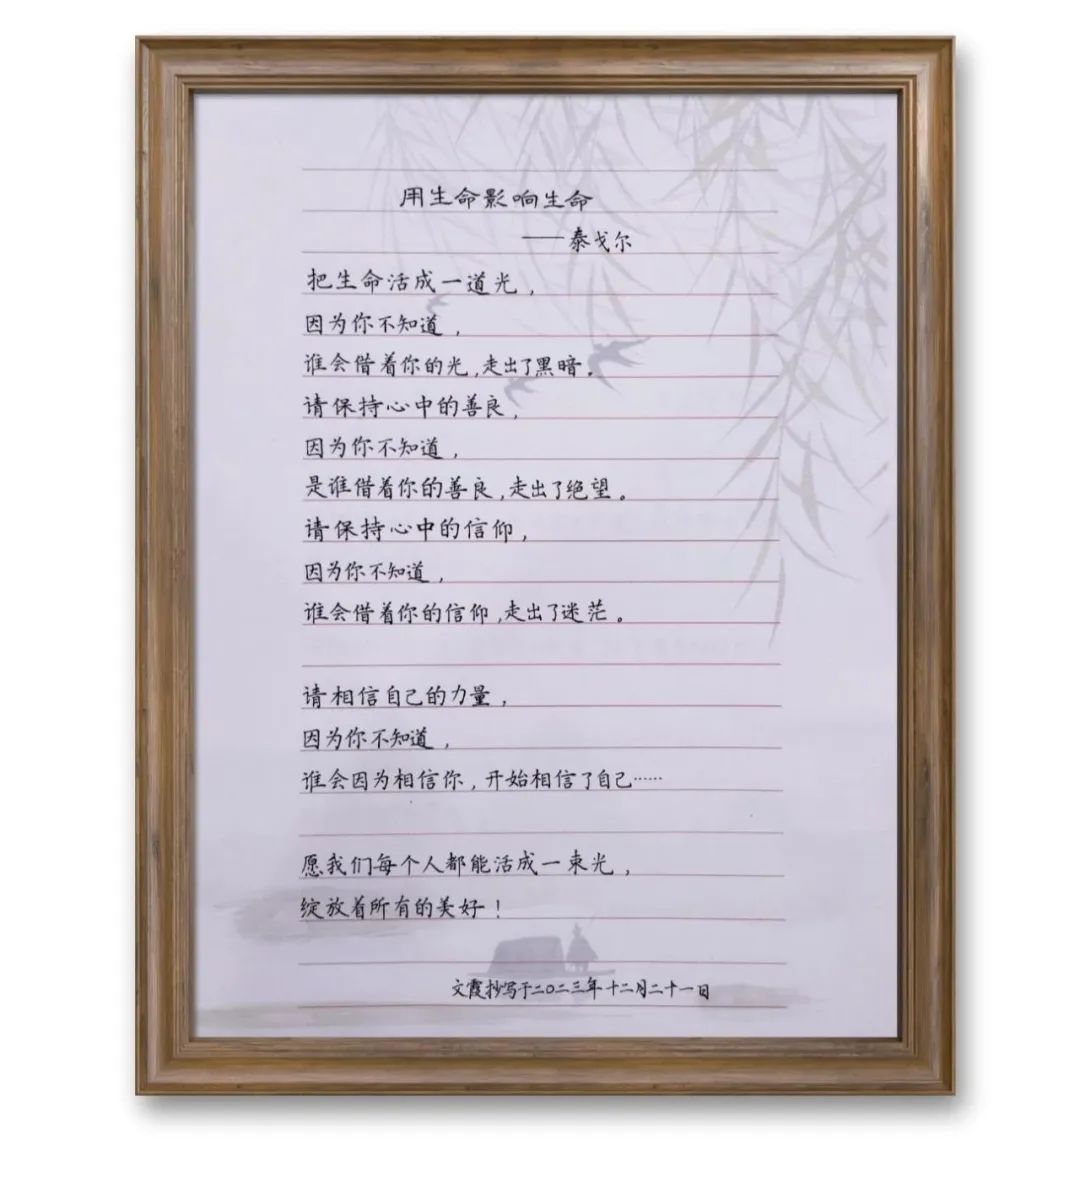 用生命影响生命
——泰戈尔
把生命活成一道光，
因为你不知道，
谁会借着你的光，走出了黑暗。
请保持心中的善良，
因为你不知道，
是谁借着你的善良，走出了绝望。
请保持心中的信仰，
因为你不知道，
谁会借着你的信仰，走出了迷茫。
请相信自己的力量，
因为你不知道，
谁会因为相信你，开始相信了自己……
愿我们每个人都能活成一束光，
绽放着所有的美好！
文霞抄写于二〇二三年十二月二十一日